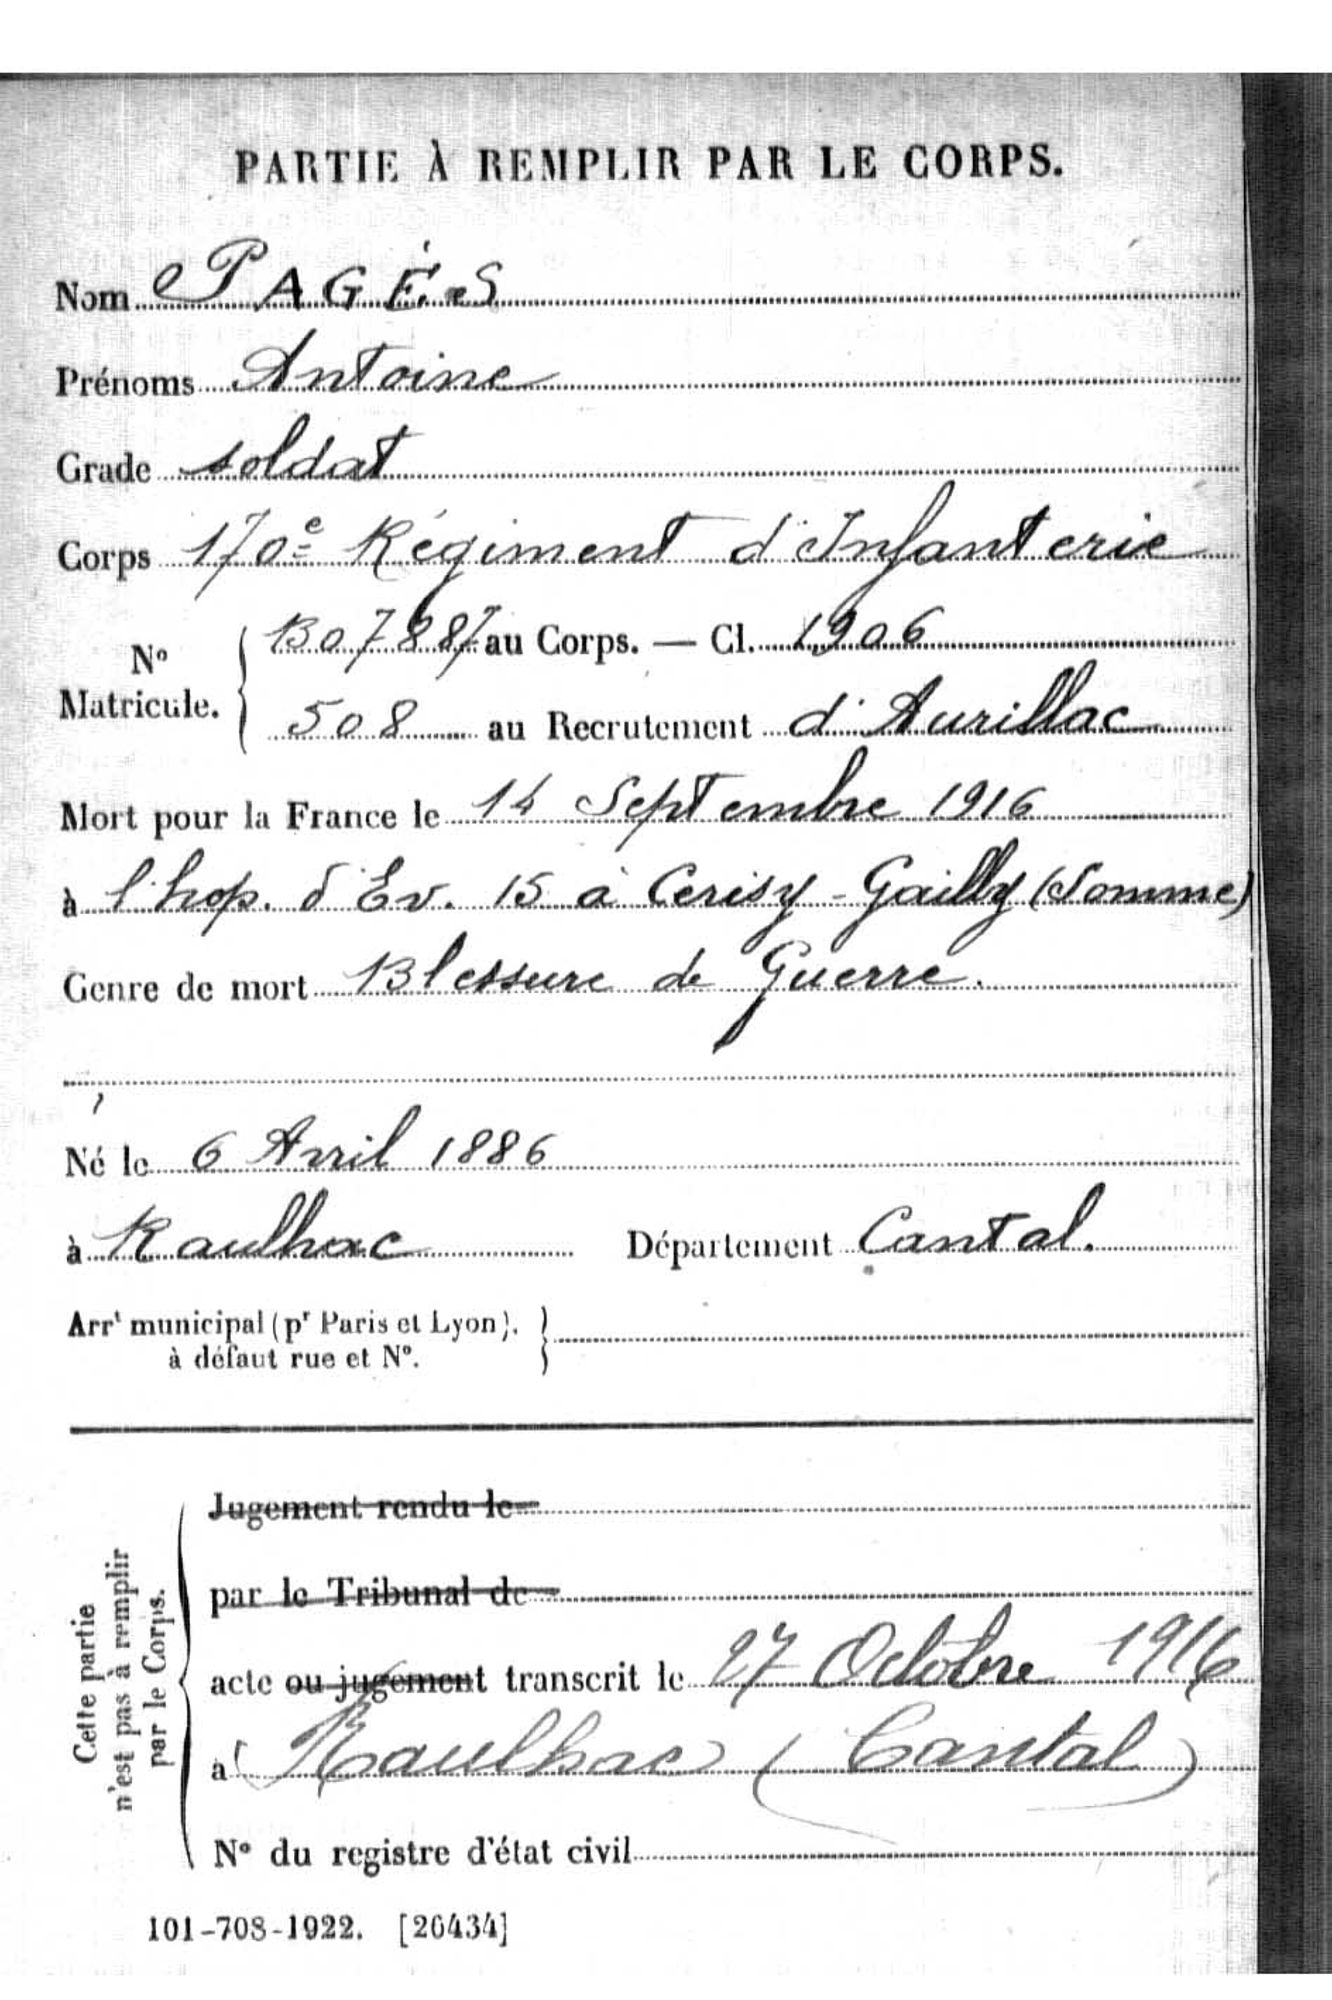 PARTIE À REMPLIR PAR LE CORPS.
Nom PAGÈS
Prénoms Antoine
Grade soldat
Corps 170e Régiment d'Infanterie
No Matricule. { 1307887 au Corps. — Cl. 1906
508 au Recrutement d'Aurillac
Mort pour la France le 14 Septembre 1916
à l'hop. d'Ev. 15 à Cerisy-Gailly (Somme)
Genre de mort Blessure de Guerre.
Né le 6 Avril 1886
à Raulhac Département Cantal.
Arrt municipal (pr Paris et Lyon),
à défaut rue et No.
Cette partie
n'est pas à remplir
par le Corps.
Jugement rendu le
par le Tribunal de
acte ou jugement transcrit le 27 Octobre 1916
à Raulhac (Cantal)
No du registre d'état civil
101-708-1922. [26434]